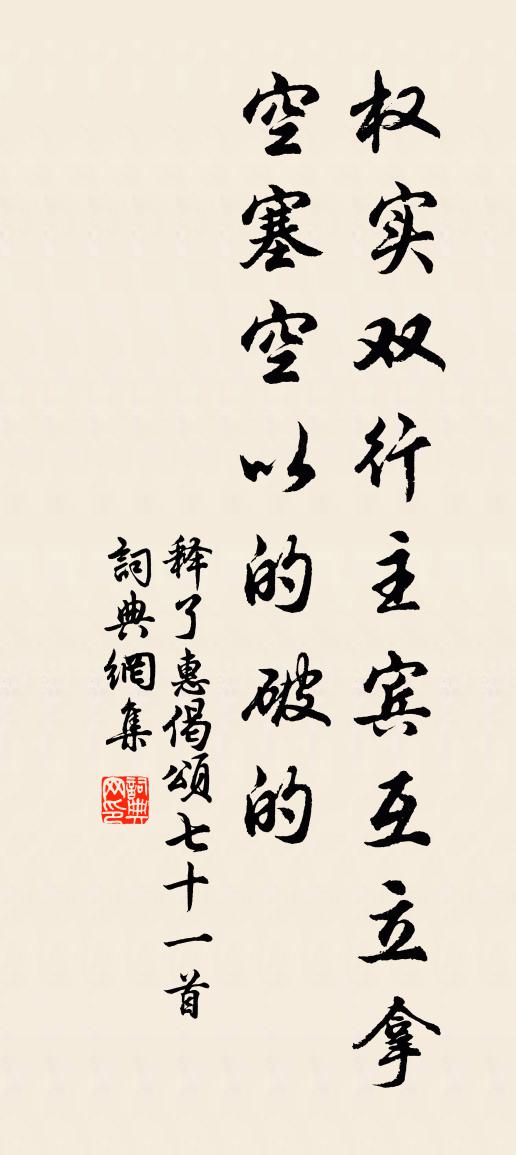 权实双行主宾互立拿
空塞空以的破的
释了惠偈颂七十一首
詞典網集
詞典网印